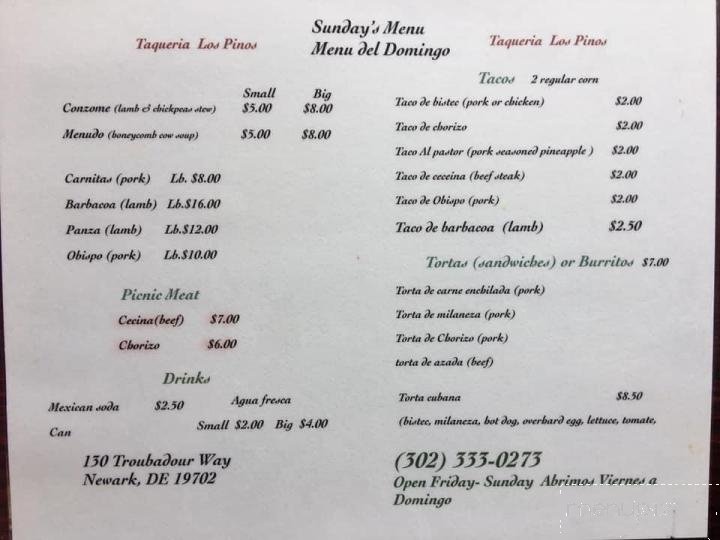 Sunday's Menu
Menu del Domingo
Taqueria Los Pinos
Small Big
Conzome (lamb & chickpeas stew) $5.00 $8.00
Menudo (honeycomb cow soup) $5.00 $8.00
Carnitas (pork) Lb. $8.00
Barbacoa (lamb) Lb.$16.00
Panza (lamb) Lb.$12.00
Obispo (pork) Lb.$10.00
Picnic Meat
Cecina(beef) $7.00
Chorizo $6.00
Drinks
Mexican soda $2.50 Agua fresca
Can Small $2.00 Big $4.00
130 Troubadour Way
Newark, DE 19702
Taqueria Los Pinos
Tacos 2 regular corn
Taco de bistec (pork or chicken) $2.00
Taco de chorizo $2.00
Taco Al pastor (pork seasoned pineapple ) $2.00
Taco de ceceina (beef steak) $2.00
Taco de Obispo (pork) $2.00
Taco de barbacoa (lamb) $2.50
Tortas (sandwiches) or Burritos $7.00
Torta de carne enchilada (pork)
Torta de milaneza (pork)
Torta de Chorizo (pork)
torta de azada (beef)
Torta cubana $8.50
(bistec, milaneza, hot dog, overhard egg, lettuce, tomate,
(302) 333-0273
Open Friday- Sunday Abrimos Viernes a
Domingo
menupix